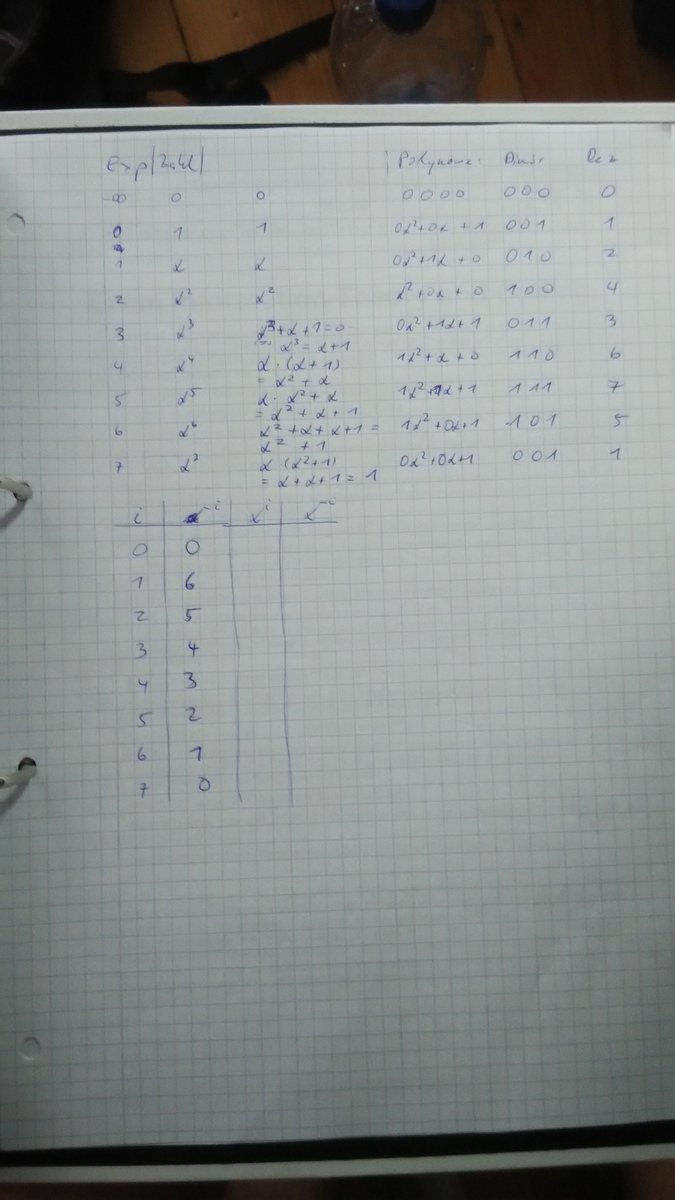 Exp|Zahl| | Polynome: Binär Dez
-∞ 0 0 0000 000 0
0 1 1 0α²+0α+1 001 1
1 α α 0α²+1α+0 010 2
2 α² α² α²+0α+0 100 4
3 α³ α³+α+1=0 0α²+1α+1 011 3
α³=α+1
4 α⁴ α·(α+1) 1α²+α+0 110 6
=α²+α
5 α⁵ α·α²+α 1α²+1α+1 111 7
=α²+α+1
6 α⁶ α²+α+α+1= 1α²+0α+1 101 5
α²+1
7 α⁷ α·(α²+1) 0α²+0α+1 001 1
=α+α+1=1
i -i αⁱ α⁻ⁱ
0 0
1 6
2 5
3 4
4 3
5 2
6 1
7 0